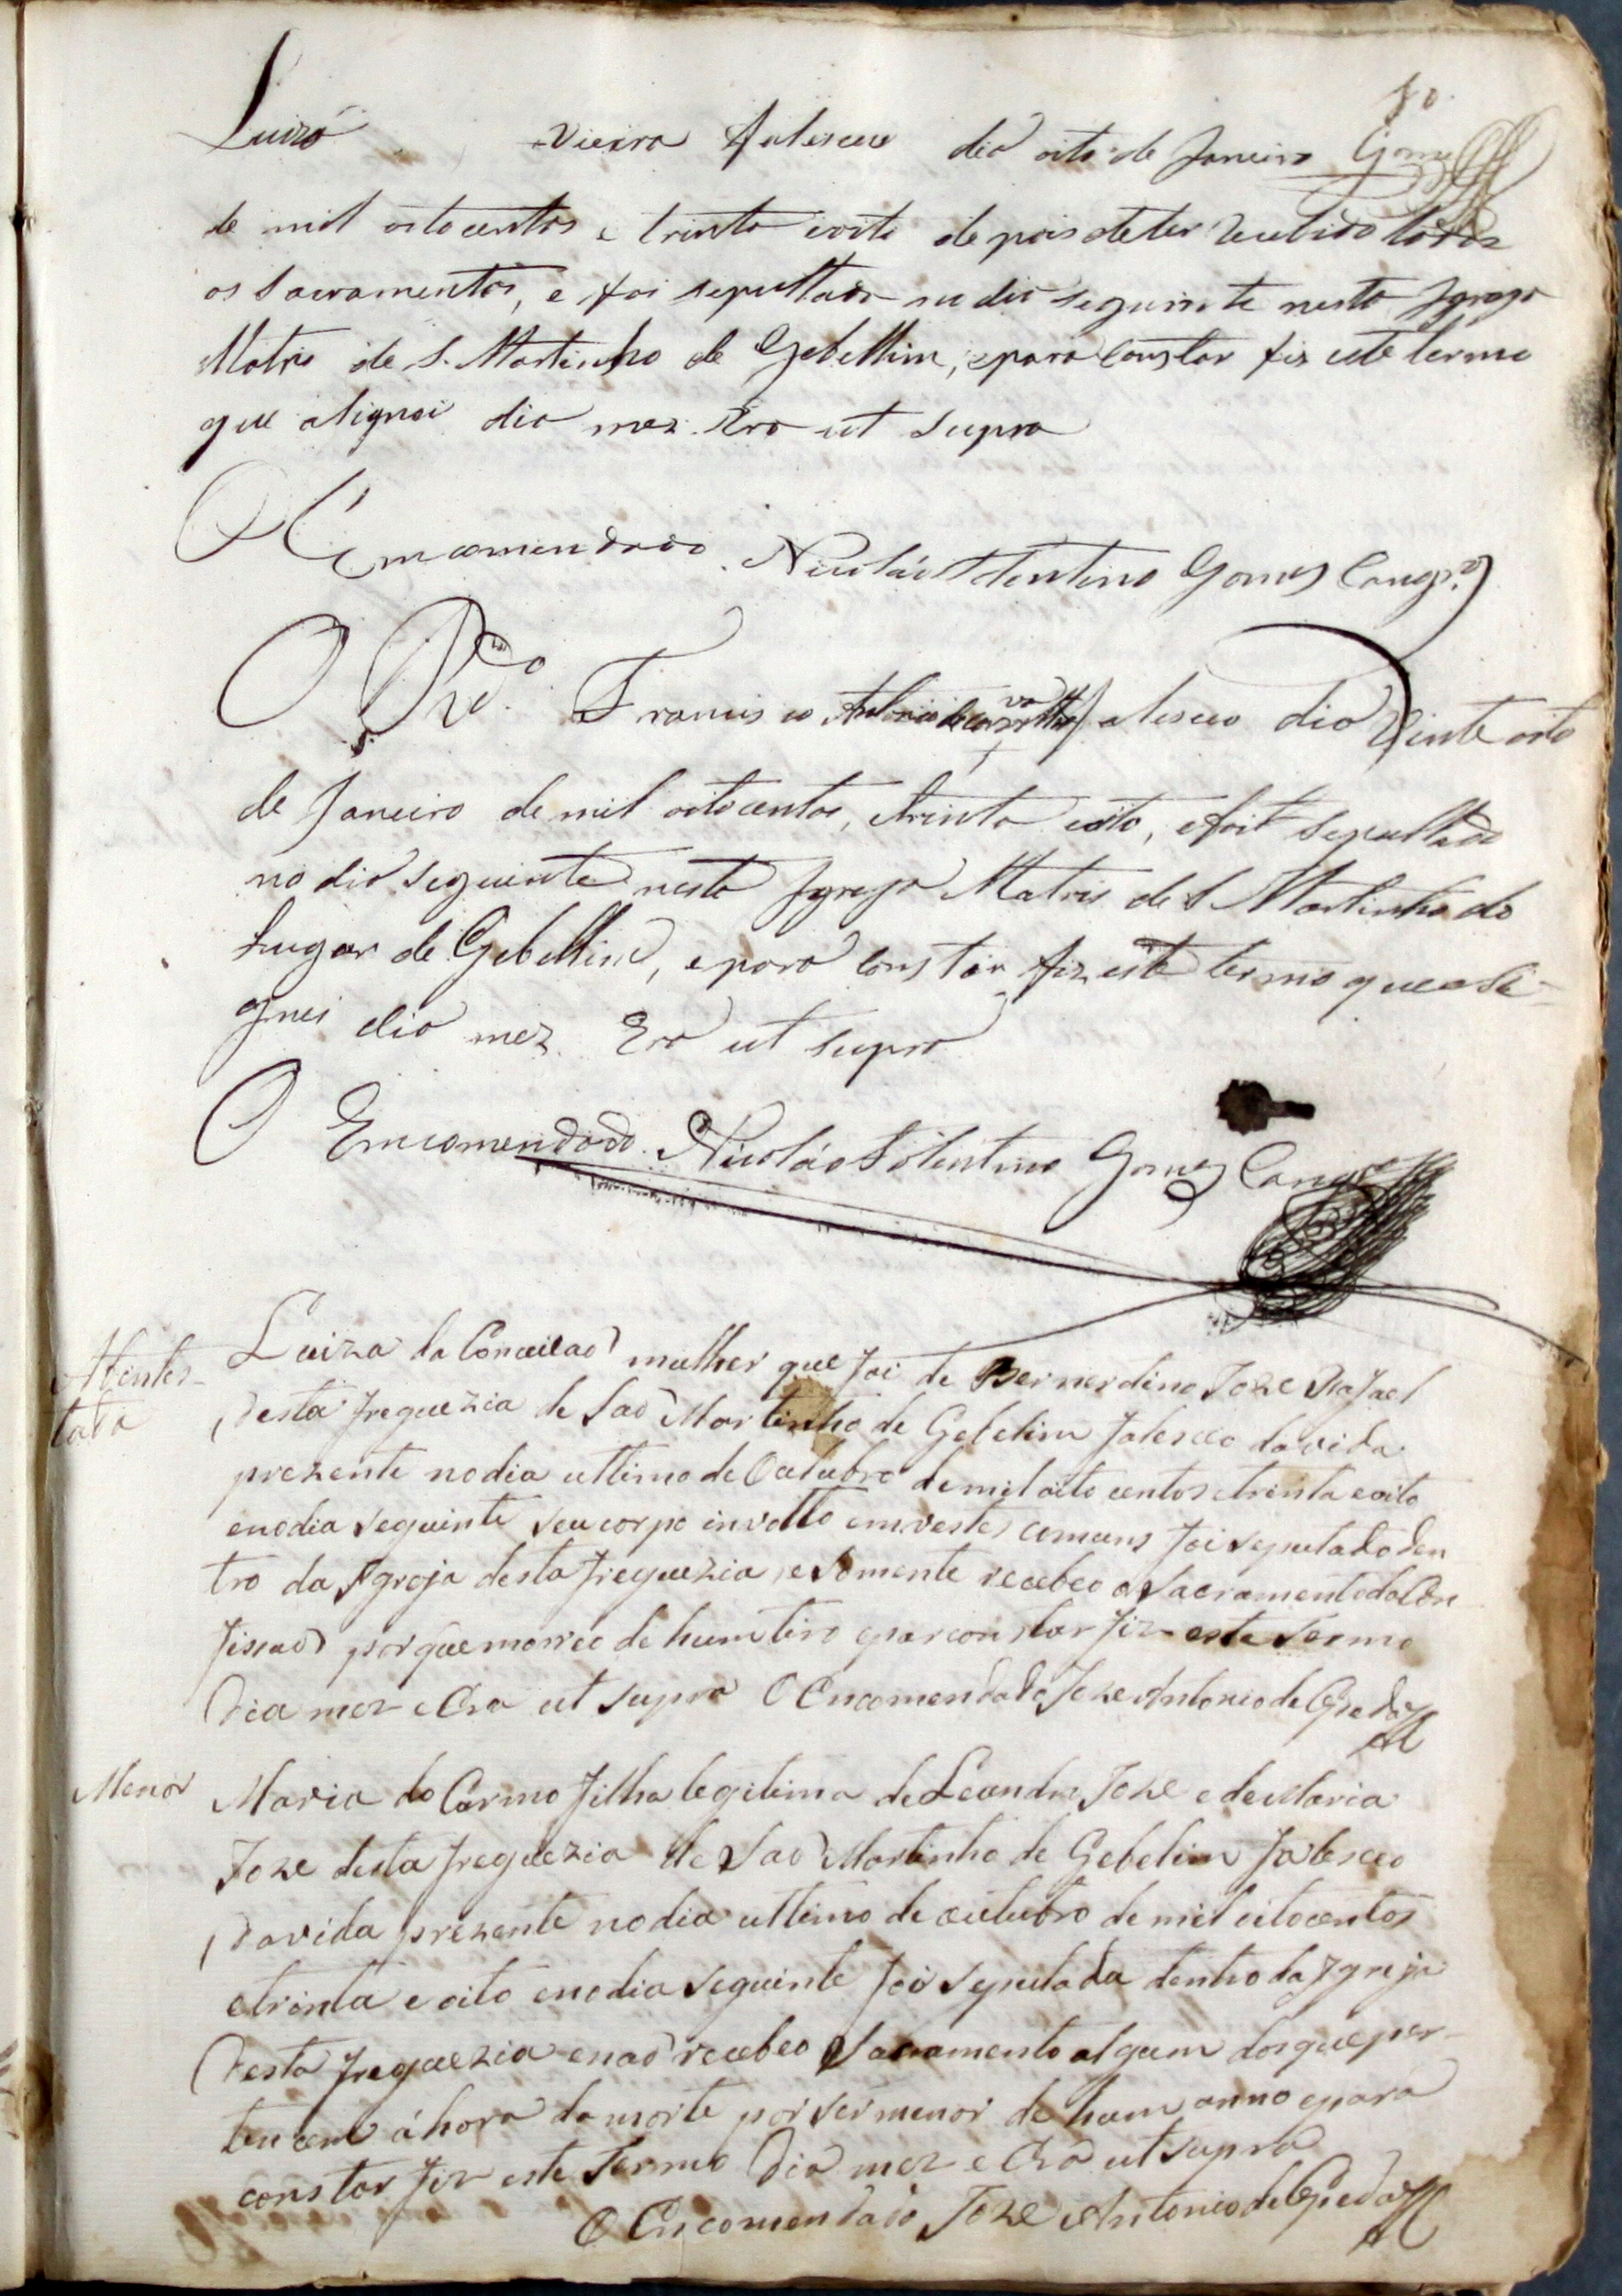 80
Gomes
Luiza Vieira faleseu dia oito de Janeiro
de mil oitocentos e trinta eoito depois deter recebido todos
os Sacramentos, e foi sepultada no dia seguinte nesta Igreja
Matris de S. Martinho de Gebellim, epara constar fiz este termo
que asignei dia mez Era ut supra
O Emcomendado Nicoláo Tolentino Gomes
O R.do Francisco Antonio faleseo dia Vinte oito
de Janeiro de mil oitocentos, etrinta eoito, efoi sepultado
no dia seguinte nesta Igreja Matris de S Martinho do
Lugar de Gebellim, epara constar fiz este termo que asi-
gnei dia mez Era ut supra
O Emcomendado Nicoláo Tolentino Gomes
Luiza da Conceicaõ mulher que foi de Bernerdino Joze Rafael
desta freguezia de Saõ Martinho de Gebelim faleseo davida
prezente nodia ultimo de Outubro de mil oito centos etrinta eoito
enodia seguinte seu corpo involto emvestes comuns foi sepultado den
tro da Igreja desta freguezia, e somente recebeo o Sacramento da Con
fissaõ porque morreo de hum tiro epar constar fiz este termo
Dia mez e Era ut supra O Encomendado Joze Antonio de
Menor
Maria do Carmo filha legitima de Leandro Joze e de Maria
Joze desta freguezia de Saõ Martinho de Gebelim faleseo
davida prezente nodia ultimo de outubro de mil oitocentos
etrinta e oito enodia seguinte foi sepultada dentro da Igreja
desta freguezia enaõ recebeo Sacramento algum dosqueper-
tencem á hora da morte por ser menor de hum anno epara
constar fiz este termo Dia mez e Era ut supra
O Encomendado Joze Antonio de